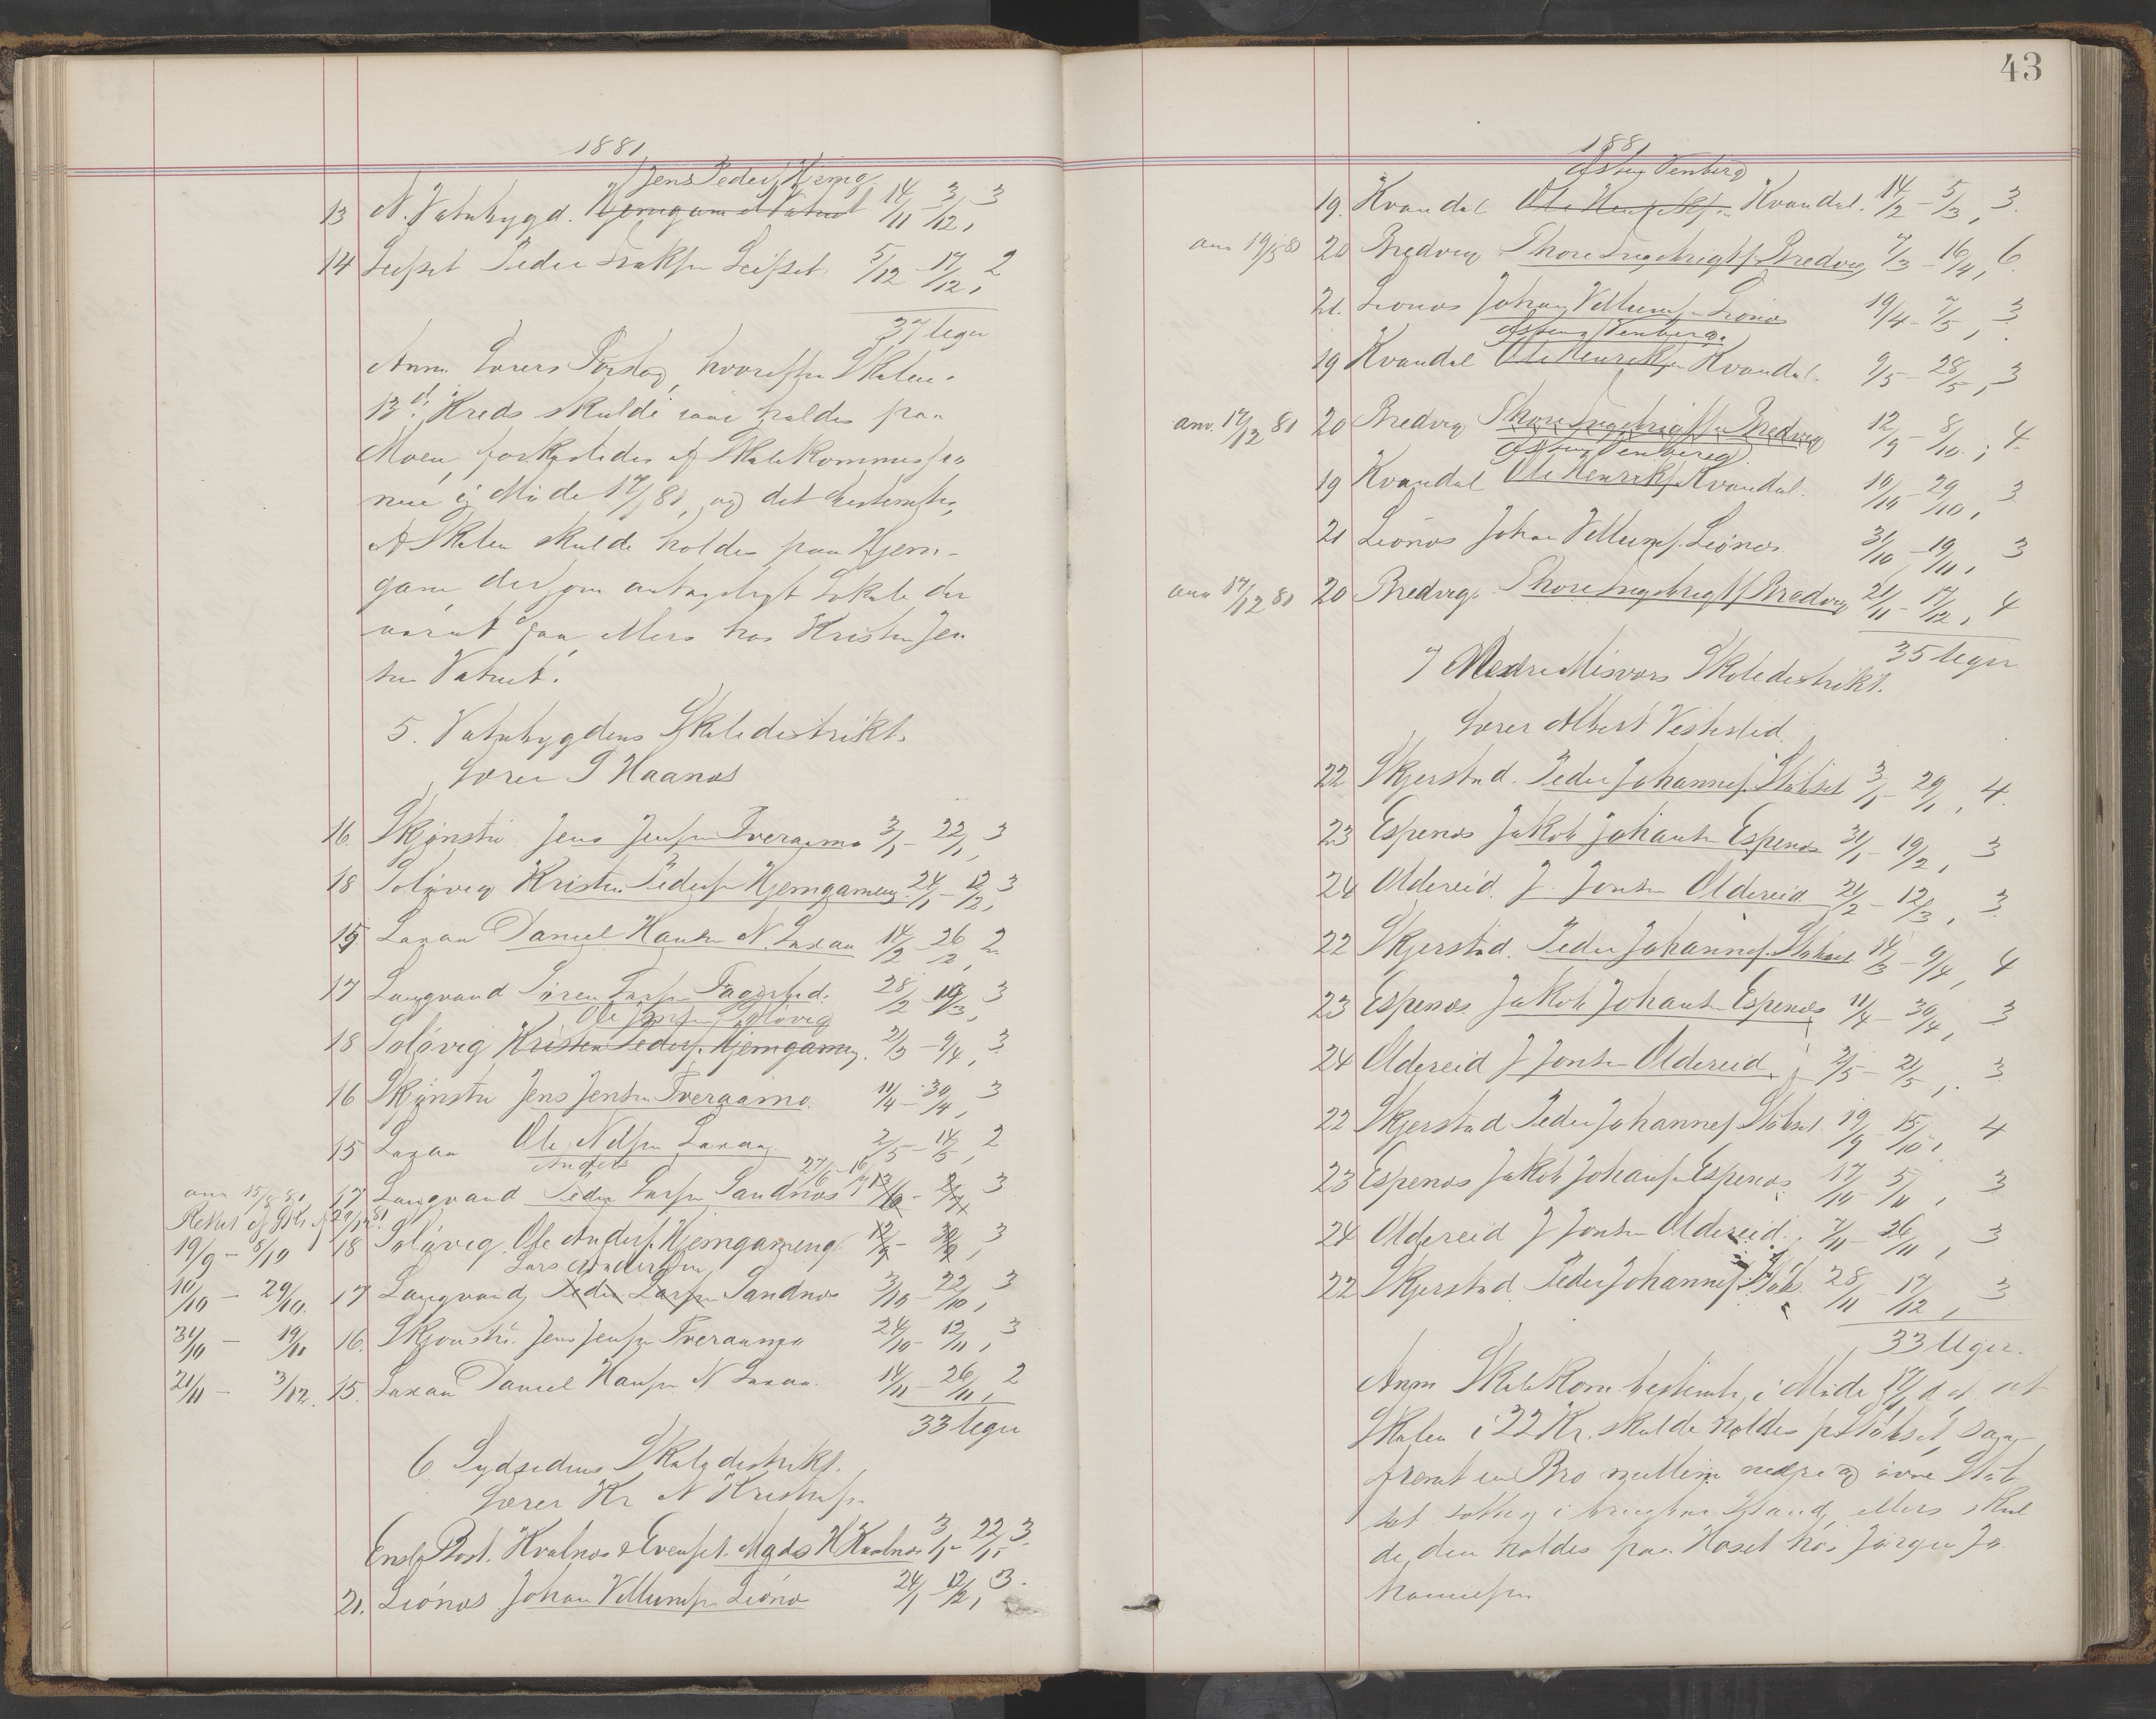 1881
Jens Peders. Hemo
13 N. Vatnbygd. Hjemgam el Vatnet 14/11 - 3/12, 3
14 Leifset Peder Isaksen Leifset 5/12 - 17/12, 2
37 Uger
Anm. Lærers Forslag, hvorefter Skolen i
13d. Kreds skulde iaar holdes paa
Moen, forkastedes af Skolekommissio
nen i Møde, og det bestemtes,
at Skolen skulde holdes paa Hjem-
gam, dersom antageligt Lokale der
var at faa, ellers hos Kristen Jen
sen Vatnet.
5. Vatnbygdens Skoledistrikt.
Lærer Haanæs
16. Skjønstu Jens Jensen Tveraamo 3/1 - 22/1, 3
18 Soløvig Kristen Pedersen Hjemgameng. 24/1 - 12/2, 3
15 Laxaa Daniel Hansen N. Laxaa 14/2 - 26/2, 2
17 Langvand Søren Larsen Fagerlid. 28/2 - 19/3, 3
Ole Soløvig
18 Soløvig Kristen Peders. Hjemgameng. 21/3 - 9/4, 3
16 Skjønstu Jens Jensen Tveraamo. 11/4 - 30/4, 3
15 Laxaa Ole Nilsen Laxaa 2/5 - 14/5, 2
Anders 27/6 - 16/7
ann 15/8 81 17 Langvand Peder Larsen Sandnæs 3
19/9 - 8/10 18 Soløvig. Ole Anders. Hjemgameng 12/9 - 30/9, 3
Lars Andersen
10/10 - 29/10. 17 Langvand Peder Larsen Sandnæs 3/10 - 22/10, 3
31/10 - 19/11 16. Skjønstu. Jens Jensen Tveraamo 24/10 - 12/11, 3
21/11 - 3/12. 15. Laxaa Daniel Hansen N Laxaa. 14/11 - 26/11, 2
33 Uger
6 Sydsidens Skoledistrikt.
Lærer Kr N Kristensen
Kvalnæs & Evenset. Mads H Kvalnæs 3/1 - 22/1, 3.
21. Leonæs Johan Villumsen Leonæs 24/1 - 12/2, 3.
43
1881
Østen Venberg
19. Kvandal Ole Henriksen Kvandal. 14/2 - 5/3, 3.
ann 19/3 81 20 Bredvig Thore Ingebrigts Bredvig 7/3 - 16/4, 6.
21. Leonæs Johan Villumsen Leonæs 19/4 - 7/5, 3
Østen Venberg.
19 Kvandal Ole Henriksen Kvandal. 9/5 - 28/5, 3
ann. 17/12 81 20 Bredvig Thore Ingebrigtsen Bredvig 12/9 - 8/10, 4.
Østen Venberg
19 Kvandal Ole Henriks. Kvandal. 10/10 - 29/10, 3
21 Leonæs Johan Villums. Leonæs 31/10 - 19/11, 3
ann 17/12 81 20 Bredvig. Thore Ingebrigts Bredvig 21/11 - 17/12, 4
35 Uger
7 Nedre Misvær Skoledistrikt.
Lærer Albert Vesterlid.
22 Skjerstad. Peder Johannes. Støbset 3/1 - 29/1, 4.
23 Espenæs Jakob Johansen Espenæs 31/1 - 19/2, 3
24 Oldereid. J. Jonsen Oldereid 21/2 - 12/3, 3
22 Skjerstad. Peder Johannes. Støbset 14/3 - 9/4, 4
23 Espenæs. Jakob Johansen Espenæs 11/4 - 30/4, 3
24 Oldereid J Jonsen Oldereid. 2/5 - 21/5, 3
22 Skjerstad Peder Johannes Støbset. 19/9 - 15/10, 4
23 Espenæs Jakob Johansen Espenæs 17/10 - 5/11, 3
24 Oldereid J Jonsen Oldereid. 7/11 - 26/11, 3
22 Skjerstad Peder Johannes. Støbs 28/11 - 17/12, 3
33 Uger.
Anm Skolekom. bestemte i Møde at
Skolen i 22 Kr. skulde holdes p. Støbset, saa-
fremt en Bro mellem nedre og øvre Støb
set sættes i brugbar Stand, ellers skul
de den holdes paa Hoset hos Jørgen Jo
hannessen